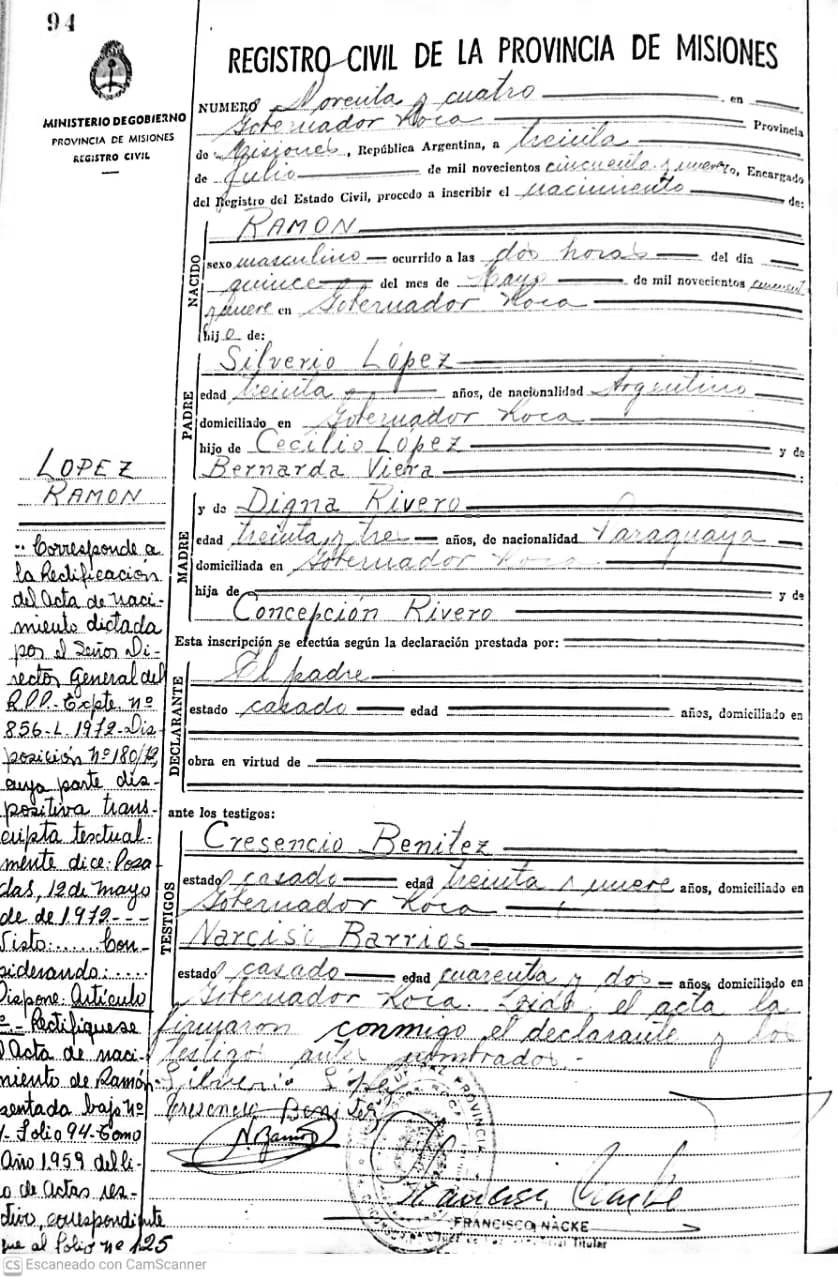 94
MINISTERIO DE GOBIERNO
PROVINCIA DE MISIONES
REGISTRO CIVIL
REGISTRO CIVIL DE LA PROVINCIA DE MISIONES
NUMERO Noventa y cuatro en
Gobernador Roca Provincia
de Misiones, República Argentina, a treinta
de Julio de mil novecientos cincuenta y nueve, Encargado
del Registro del Estado Civil, procedo a inscribir el nacimiento de:
NACIDO
RAMON
sexo masculino ocurrido a las dos horas del día
quince del mes de Mayo de mil novecientos
y nueve en Gobernador Roca
hijo de:
PADRE
Silverio López
edad treinta años, de nacionalidad Argentino
domiciliado en Gobernador Roca
hijo de Cecilio López y de
Bernarda Viera
MADRE
y de Digna Rivero
edad treinta y tres años, de nacionalidad Paraguaya
domiciliada en Gobernador Roca
hija de y de
Concepción Rivero
Esta inscripción se efectúa según la declaración prestada por:
DECLARANTE
El padre
estado casado edad años, domiciliado en
obra en virtud de
ante los testigos:
TESTIGOS
Cresencio Benitez
estado casado edad treinta y nueve años, domiciliado en
Gobernador Roca
Narciso Barrios
estado casado edad cuarenta y dos años, domiciliado en
Gobernador Roca. Leida el acta la
firmaron conmigo el declarante y los
testigos antes nombrados.-
Silverio López
Cresencio Benitez
FRANCISCO NACKE
Titular
LOPEZ
RAMON
Corresponde a
la Rectificación
del Acta de naci-
miento dictada
por el Señor Di-
rector General del
R.P.P.- Expte. nº
856-L. 1972- Dis-
posición Nº 180/72,
cuya parte dis-
positiva trans-
cripta textual-
mente dice: Posa-
das, 12 de mayo
de de 1972---
Visto:...... Con-
siderando:....
Dispone: Artículo
º.- Rectifiquese
l Acta de naci-
miento de Ramón
sentada bajo Nº
Folio 94- Tomo
Año 1959 del li-
o de Actas res-
ctivo, correspondiente
que al folio nº 125
CS Escaneado con CamScanner